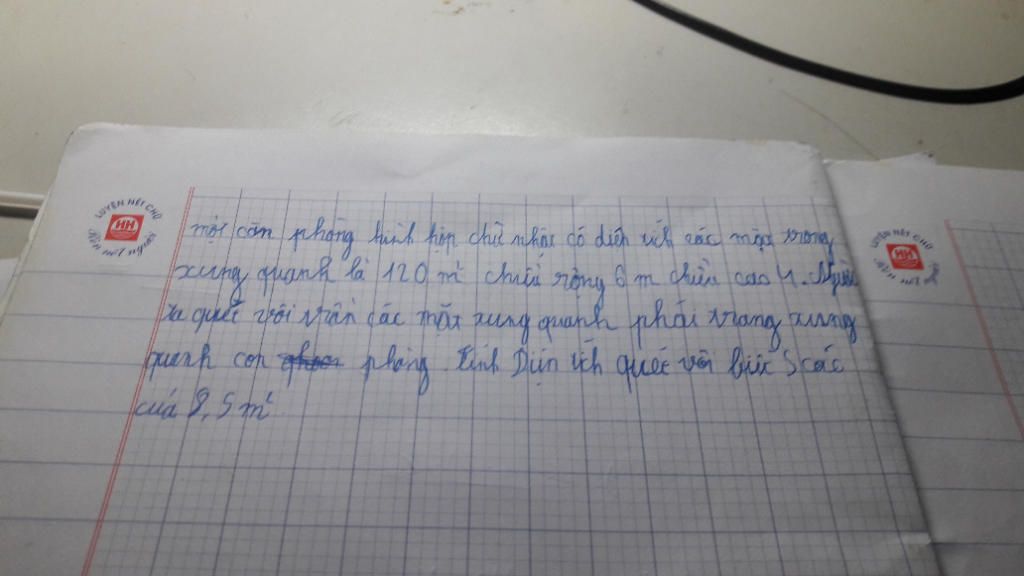 LUYỆN NÉT CHỮ
HH
RÈN NẾT NGƯỜI
LUYỆN NÉT CHỮ
HH
RÈN NẾT NGƯỜI
một căn phòng hình hộp chữ nhật có diện tích các mặt trong
xung quanh là 120 m² chiều rộng 6 m chiều cao 4. Người
ta quét vôi trần các mặt xung quanh phái trong xung
quanh con phòng. Tính Diện tích quét vôi biết S các
cuả 8,5 m²